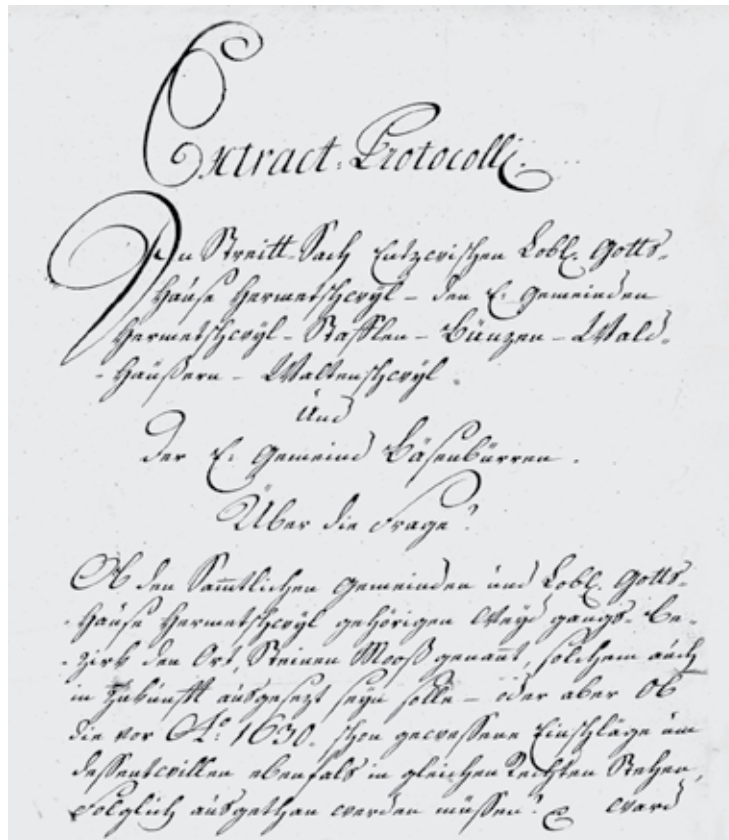 Extract: Protocolli.
In Streitt-Sach Entzwischen Lobl. Gotts-
Hause Hermetschwÿl – den E. Gemeinden
Hermetschwÿl – Stafflen – Bünzen – Wald-
-Häußern – Waltenschwÿl.
Und
Der E. Gemeind Bäsenbürren.
Über die Frage?
Ob den Sam̄tlichen Gemeinden und Lobl. Gotts-
-Hause Hermetschwÿl gehörigen Weÿdgangs-Be-
-zirk den Ort, Steinen Mooß genan̄t, solchem auch
in Zukunfft ausgesezt seÿn solle – oder aber Ob
die vor A.o 1630. schon gewessene Einschläge um
dessentwillen ebenfals in gleichen Rechten Stehen,
Folglich ausgethan werden müssen? ward